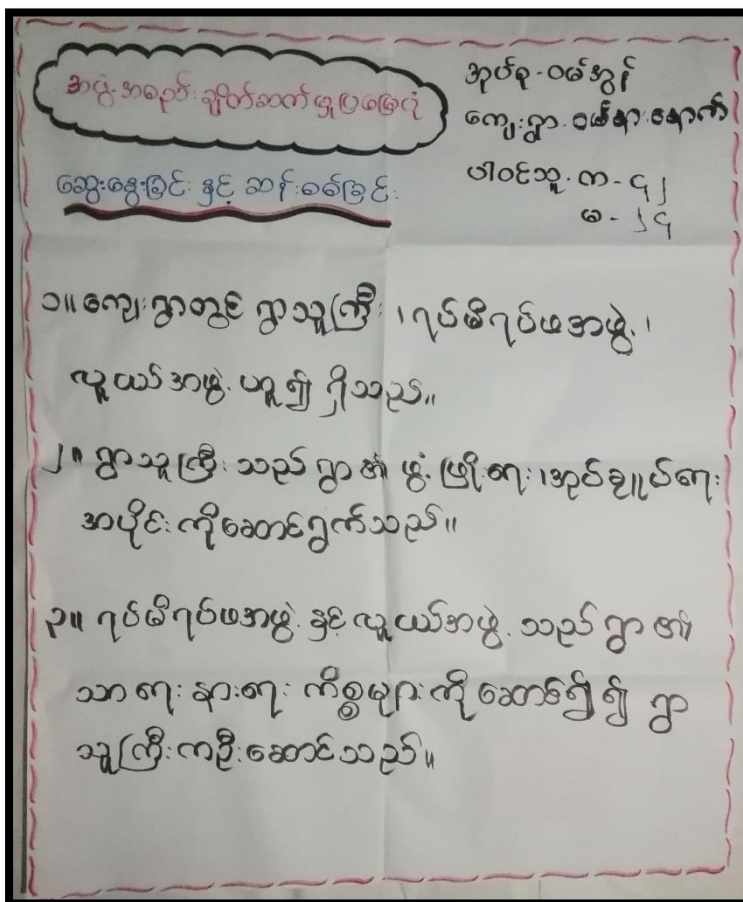 အဖွဲ့အစည်းချိတ်ဆက်မှုပြမြေပုံ
အုပ်စု - ဝမ်အွန်
ကျေးရွာ - ဝမ်နားနောက်
ဆွေးနွေးခြင်း နှင့် ဆန်းစစ်ခြင်း
ပါဝင်သူ - က - ၄၂
မ - ၂၄
၁။ ကျေးရွာတွင် ရွာသူကြီး ၊ ရပ်မိရပ်ဖအဖွဲ့ ၊
လူငယ်အဖွဲ့ ဟူ၍ ရှိသည်။
၂။ ရွာသူကြီး သည် ရွာ၏ ဖွံ့ဖြိုးရေး ၊ အုပ်ချုပ်ရေး
အပိုင်းကိုဆောင်ရွက်သည်။
၃။ ရပ်မိရပ်ဖအဖွဲ့ နှင့် လူငယ်အဖွဲ့ သည် ရွာ၏
သာရေး နာရေး ကိစ္စများကို ဆောင်၍ ရွာ
သူကြီးကဦးဆောင်သည်။